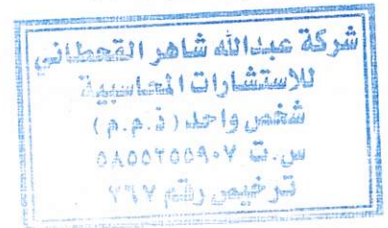 شركة عبدالله شاهر القحطاني
للاستشارات المحاسبية
شخص واحد (ذ.م.م)
س.ت ٥٨٥٥٣٥٥٩٠٧
ترخيص رقم ٧٩٧